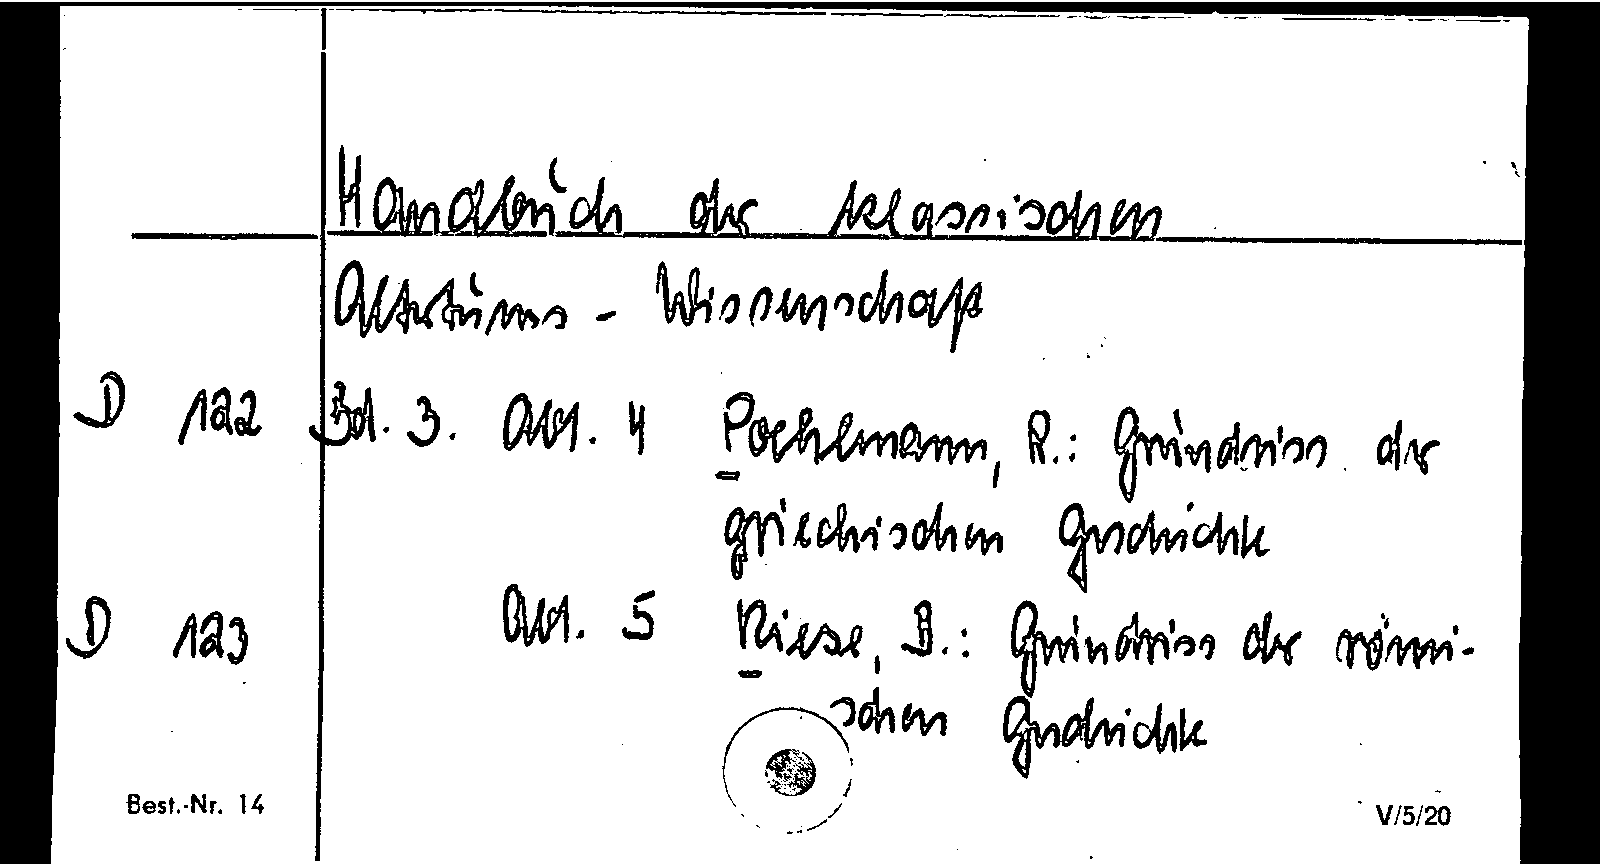 Handbuch der klassischen
Altertums - Wissenschaft
D 122 Bd. 3. Abt. 4 Poehlmann, R.: Grundriss der
griechischen Geschichte
D 123 Abt. 5 Niese, B.: Grundriss der römi-
schen Geschichte
Best.-Nr. 14 V/5/20